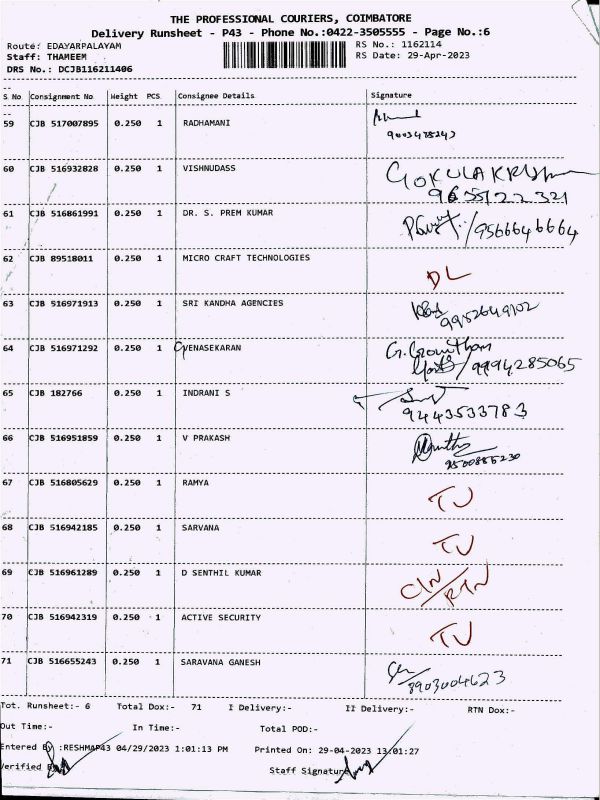 THE PROFESSIONAL COURIERS, COIMBATORE
Delivery Runsheet - P43 - Phone No.:0422-3505555 - Page No.:6
Route: EDAYARPALAYAM
RS No.: 1162114
Staff: THAMEEM
RS Date: 29-Apr-2023
DRS No.: DCJB116211406
S No Consignment No Weight PCS Consignee Details Signature
59 CJB 517007895 0.250 1 RADHAMANI
9003478243
60 CJB 516932828 0.250 1 VISHNUDASS GOKULAKRISHNAN
9655122321
61 CJB 516861991 0.250 1 DR. S. PREM KUMAR /9566646664
62 CJB 89518011 0.250 1 MICRO CRAFT TECHNOLOGIES DL
63 CJB 516971913 0.250 1 SRI KANDHA AGENCIES
9952649102
64 CJB 516971292 0.250 1 GVENASEKARAN G. Gowtham
/9994285065
65 CJB 182766 0.250 1 INDRANI S
9443533783
66 CJB 516951859 0.250 1 V PRAKASH
9500886230
67 CJB 516805629 0.250 1 RAMYA TU
68 CJB 516942185 0.250 1 SARVANA TU
69 CJB 516961289 0.250 1 D SENTHIL KUMAR CIN/RTN
70 CJB 516942319 0.250 1 ACTIVE SECURITY TU
71 CJB 516655243 0.250 1 SARAVANA GANESH
8903004623
Tot. Runsheet:- 6 Total Dox:- 71 I Delivery:- II Delivery:- RTN Dox:-
Out Time:- In Time:- Total POD:-
Entered By :RESHMAP43 04/29/2023 1:01:13 PM Printed On: 29-04-2023 13:01:27
Verified By Staff Signature